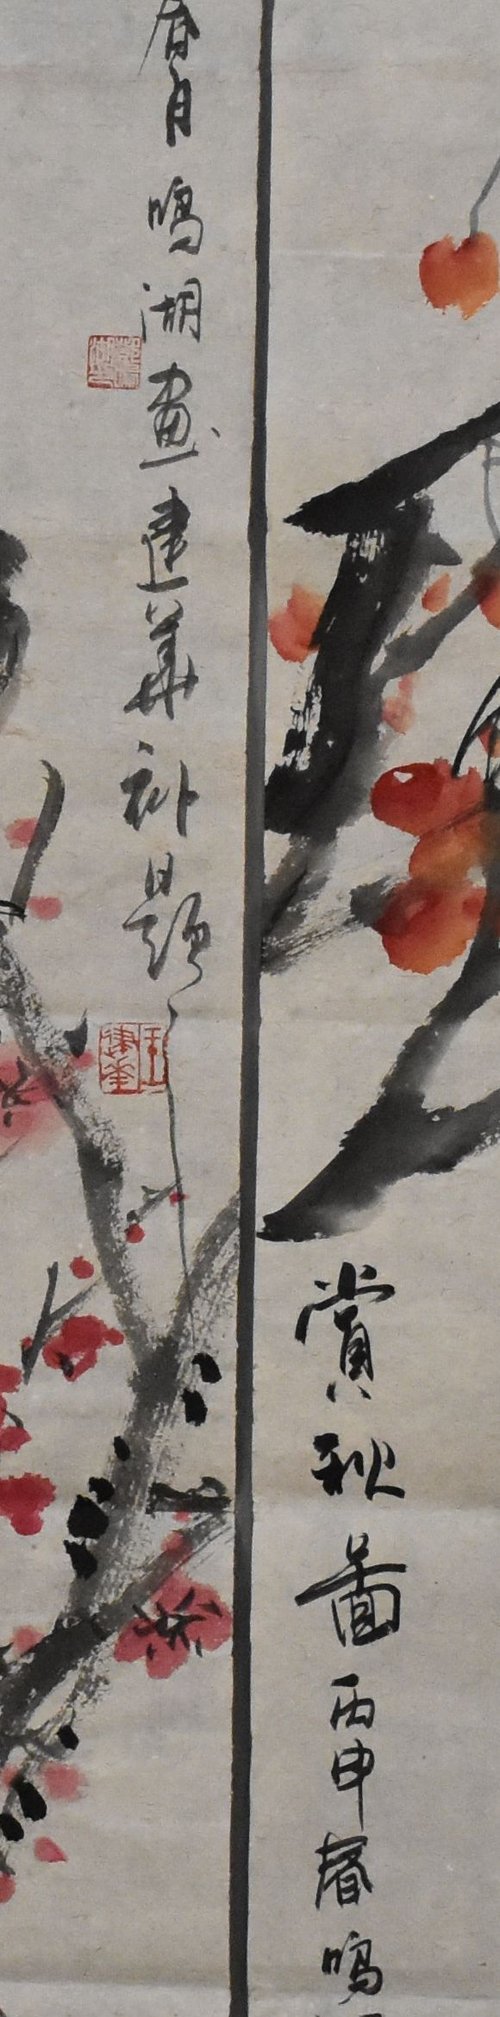 賞秋圖丙申春鳴
月鳴湖畫建華補題